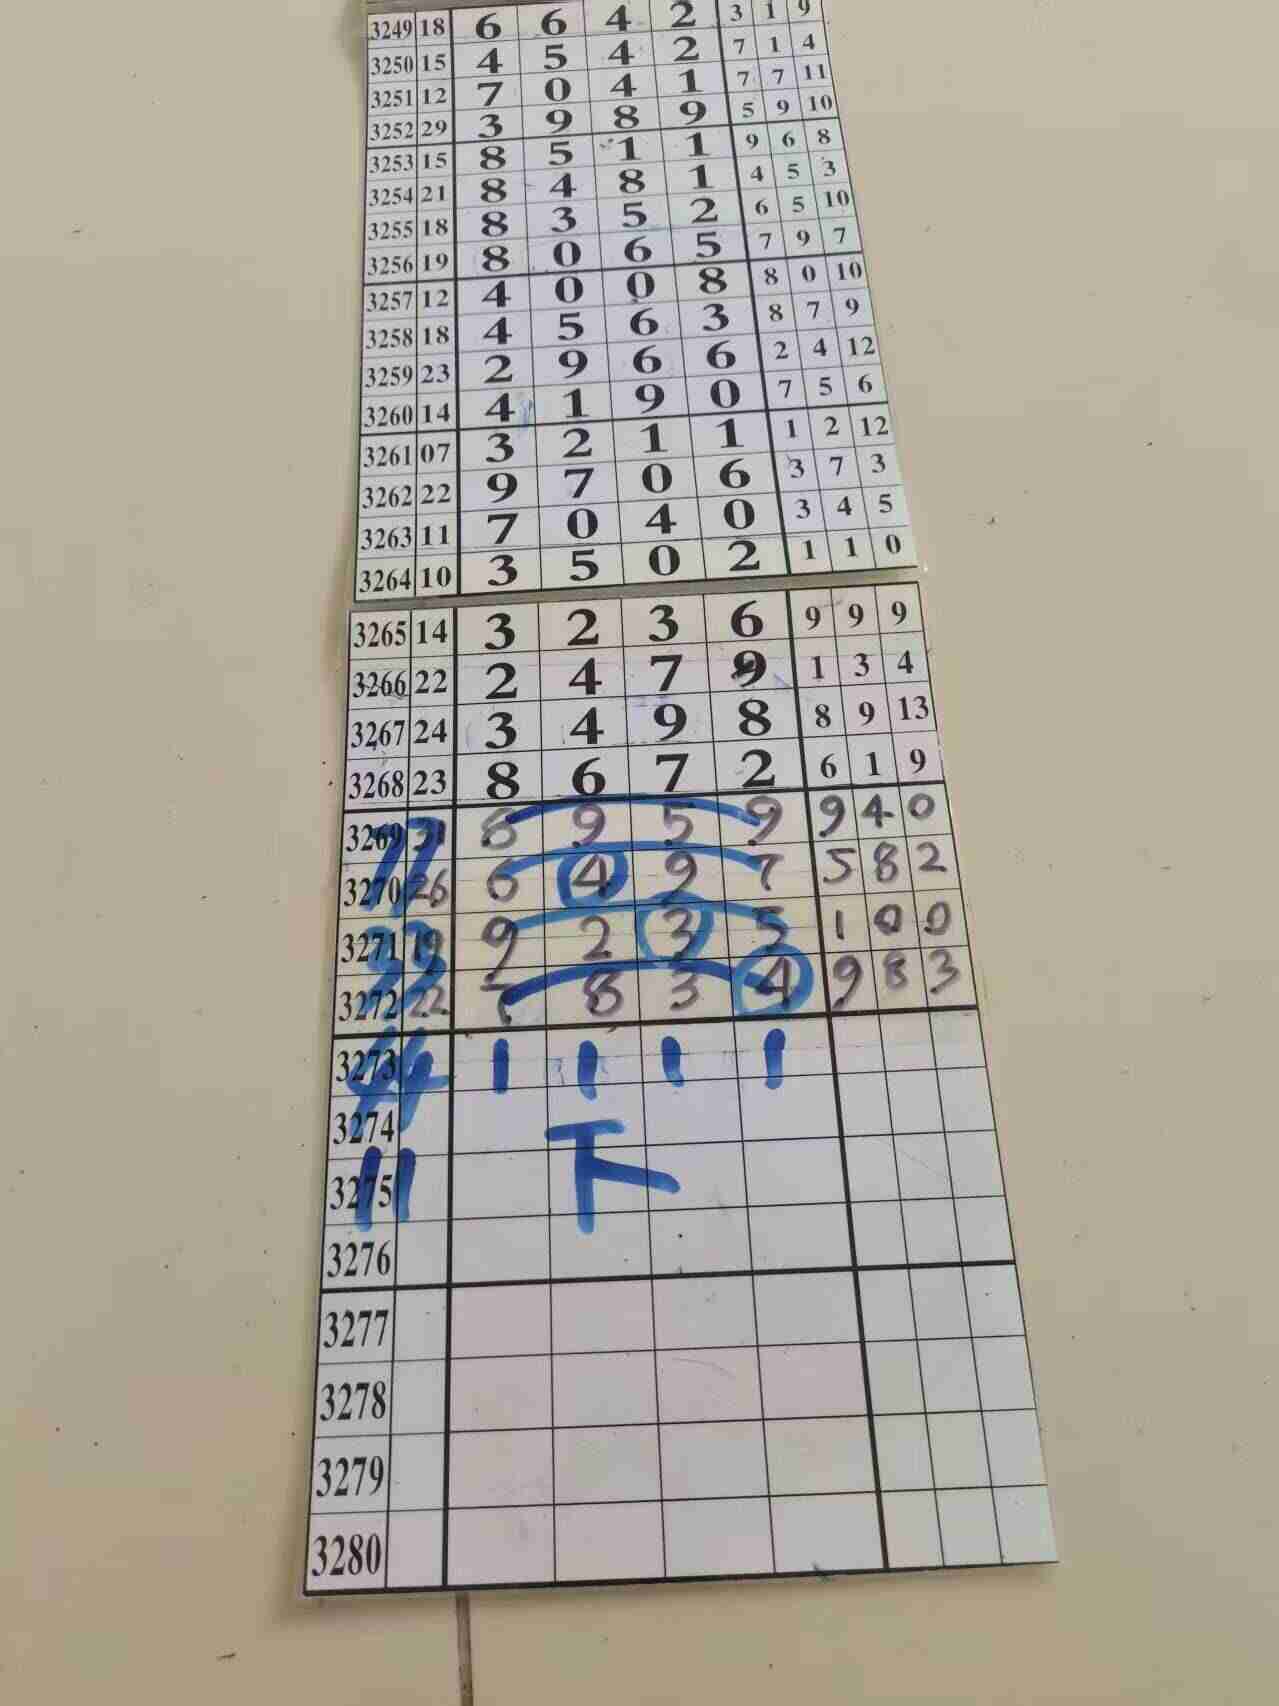 3249 18 6 6 4 2 3 1 9
3250 15 4 5 4 2 7 1 4
3251 12 7 0 4 1 7 7 11
3252 29 3 9 8 9 5 9 10
3253 15 8 5 1 1 9 6 8
3254 21 8 4 8 1 4 5 3
3255 18 8 3 5 2 6 5 10
3256 19 8 0 6 5 7 9 7
3257 12 4 0 0 8 8 0 10
3258 18 4 5 6 3 8 7 9
3259 23 2 9 6 6 2 4 12
3260 14 4 1 9 0 7 5 6
3261 07 3 2 1 1 1 2 12
3262 22 9 7 0 6 3 7 3
3263 11 7 0 4 0 3 4 5
3264 10 3 5 0 2 1 1 0
3265 14 3 2 3 6 9 9 9
3266 22 2 4 7 9 1 3 4
3267 24 3 4 9 8 8 9 13
3268 23 8 6 7 2 6 1 9
3269 31 8 9 5 9 9 4 0
3270 26 6 4 9 7 5 8 2
3271 19 9 2 3 5 1 0 0
3272 22 7 8 3 4 9 8 3
3273 1 1 1 1
3274
3275 11 下
3276
3277
3278
3279
3280